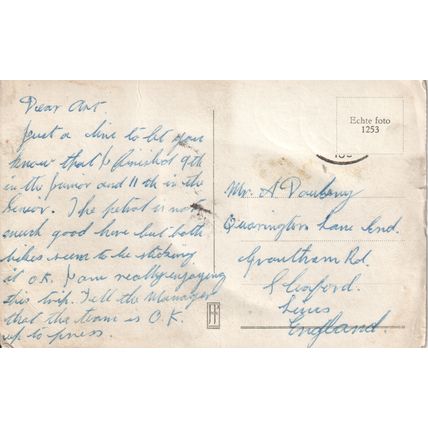 Dear Art
Just a line to let you
know that I finished 9th
in the junior and 11th in the
senior. The petrol is not
much good here but both
bikes seem to be sticking
it O.K. I am really enjoying
this trip. Tell the Manager
that the team is O.K.
up to press.
Echte foto
1253
Mr. A
Quarrington Lane End.
Grantham Rd.
Sleaford.
Lincs
England.